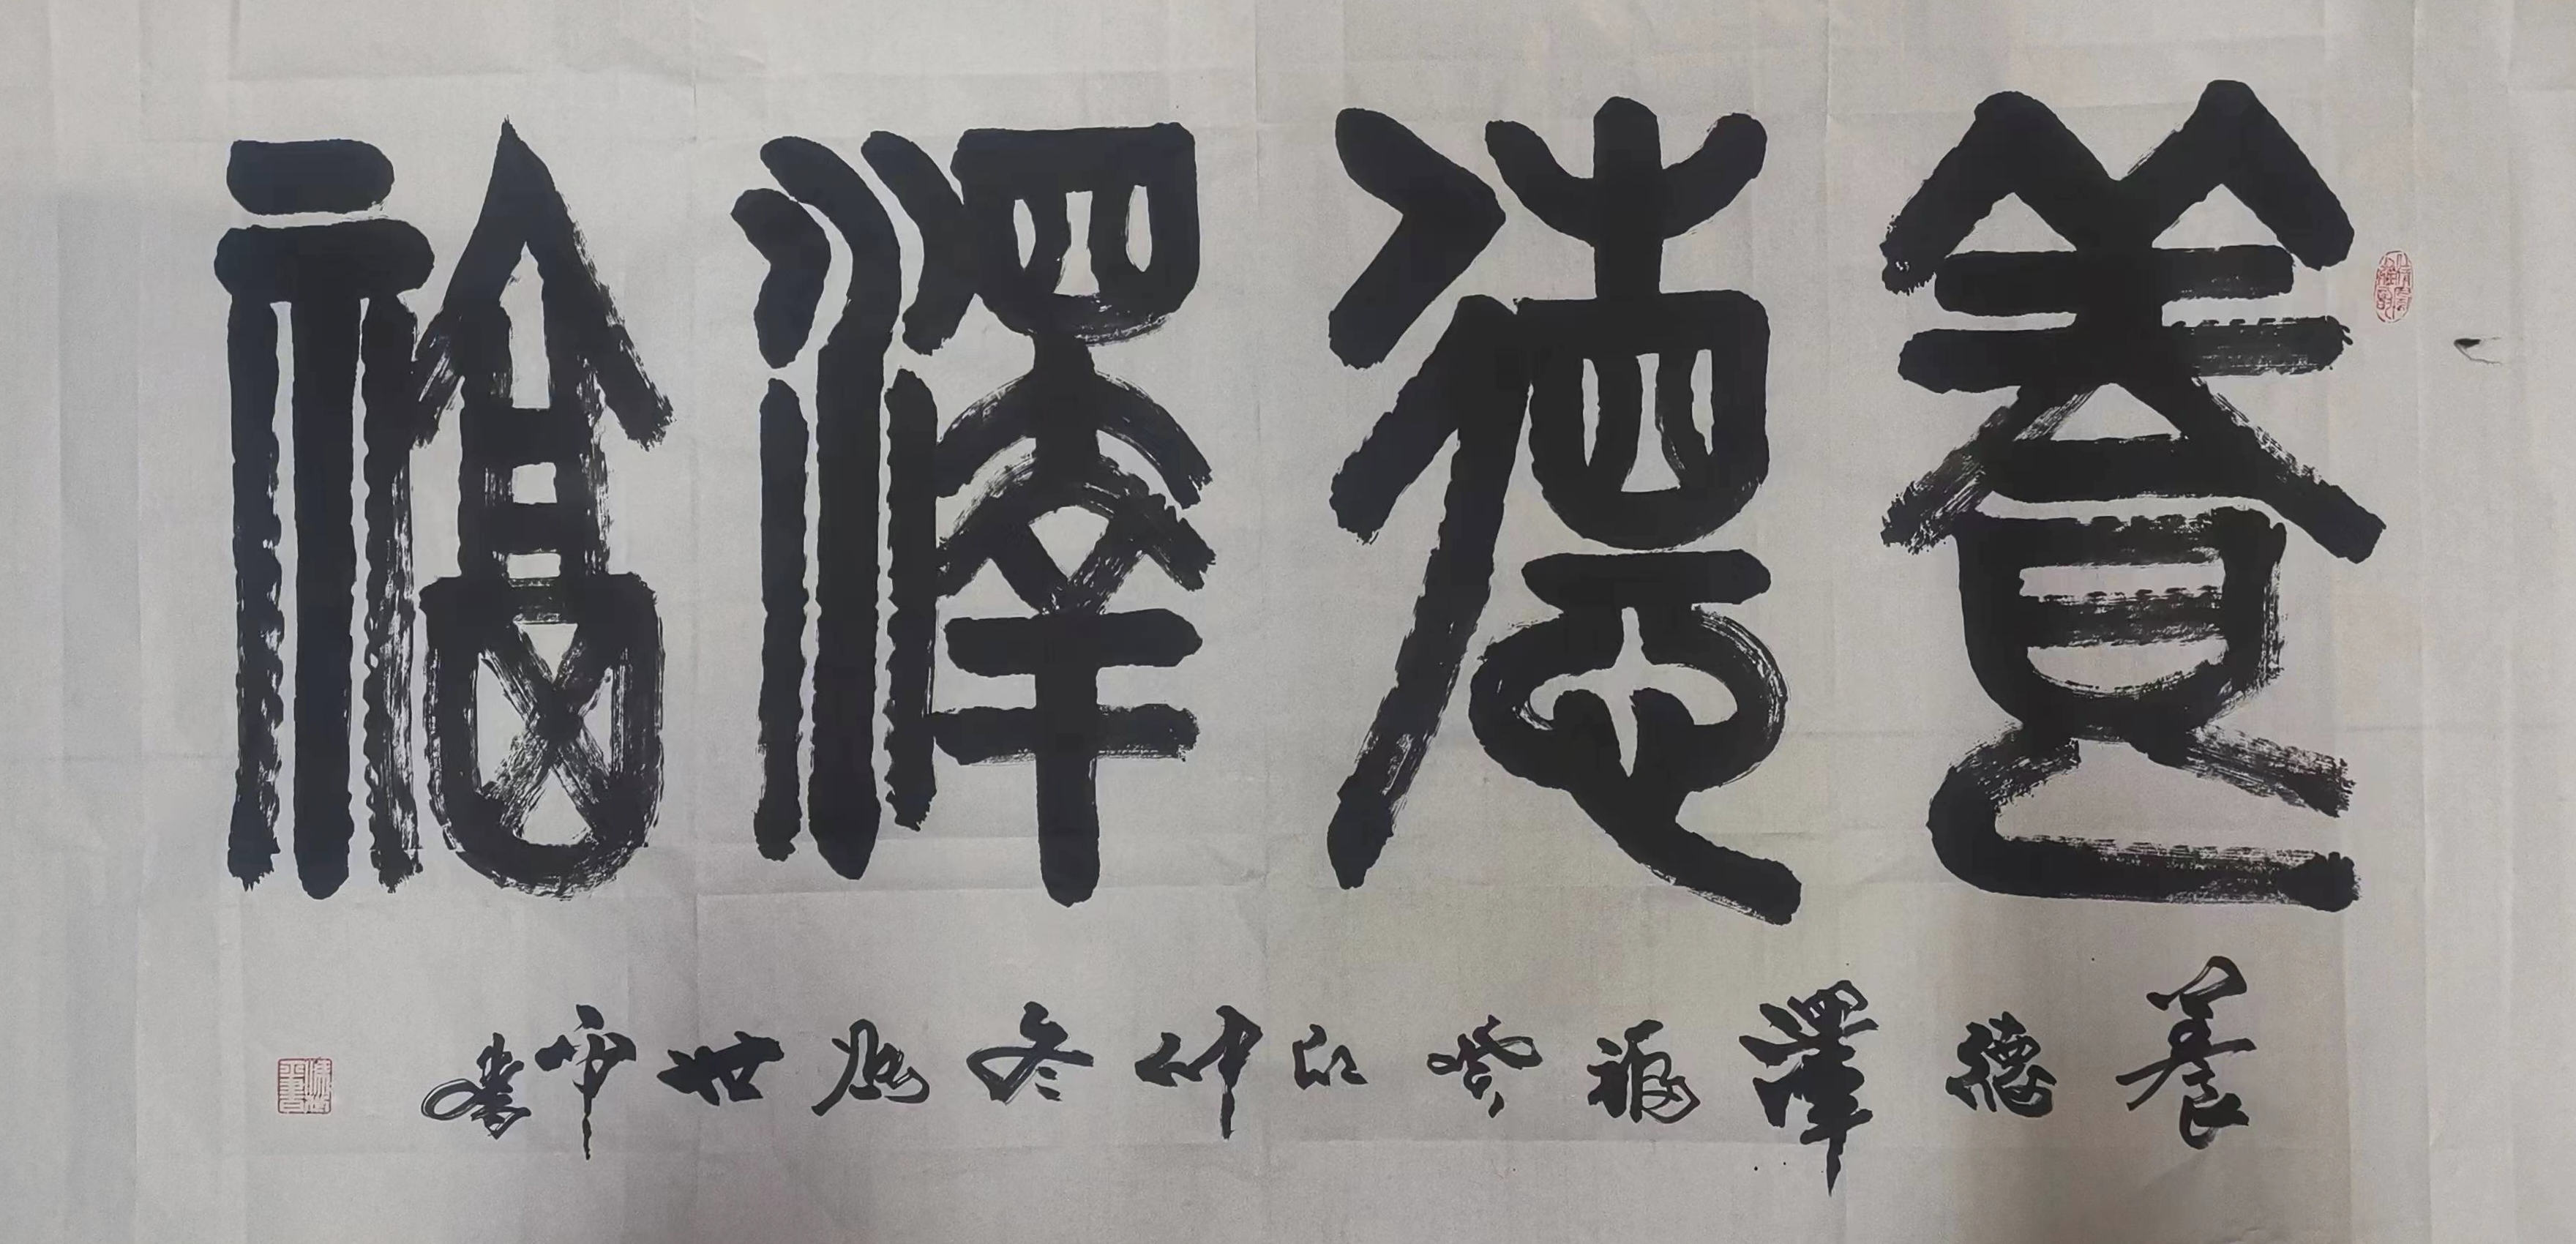 養德澤福
養德澤福癸卯仲冬世帝書